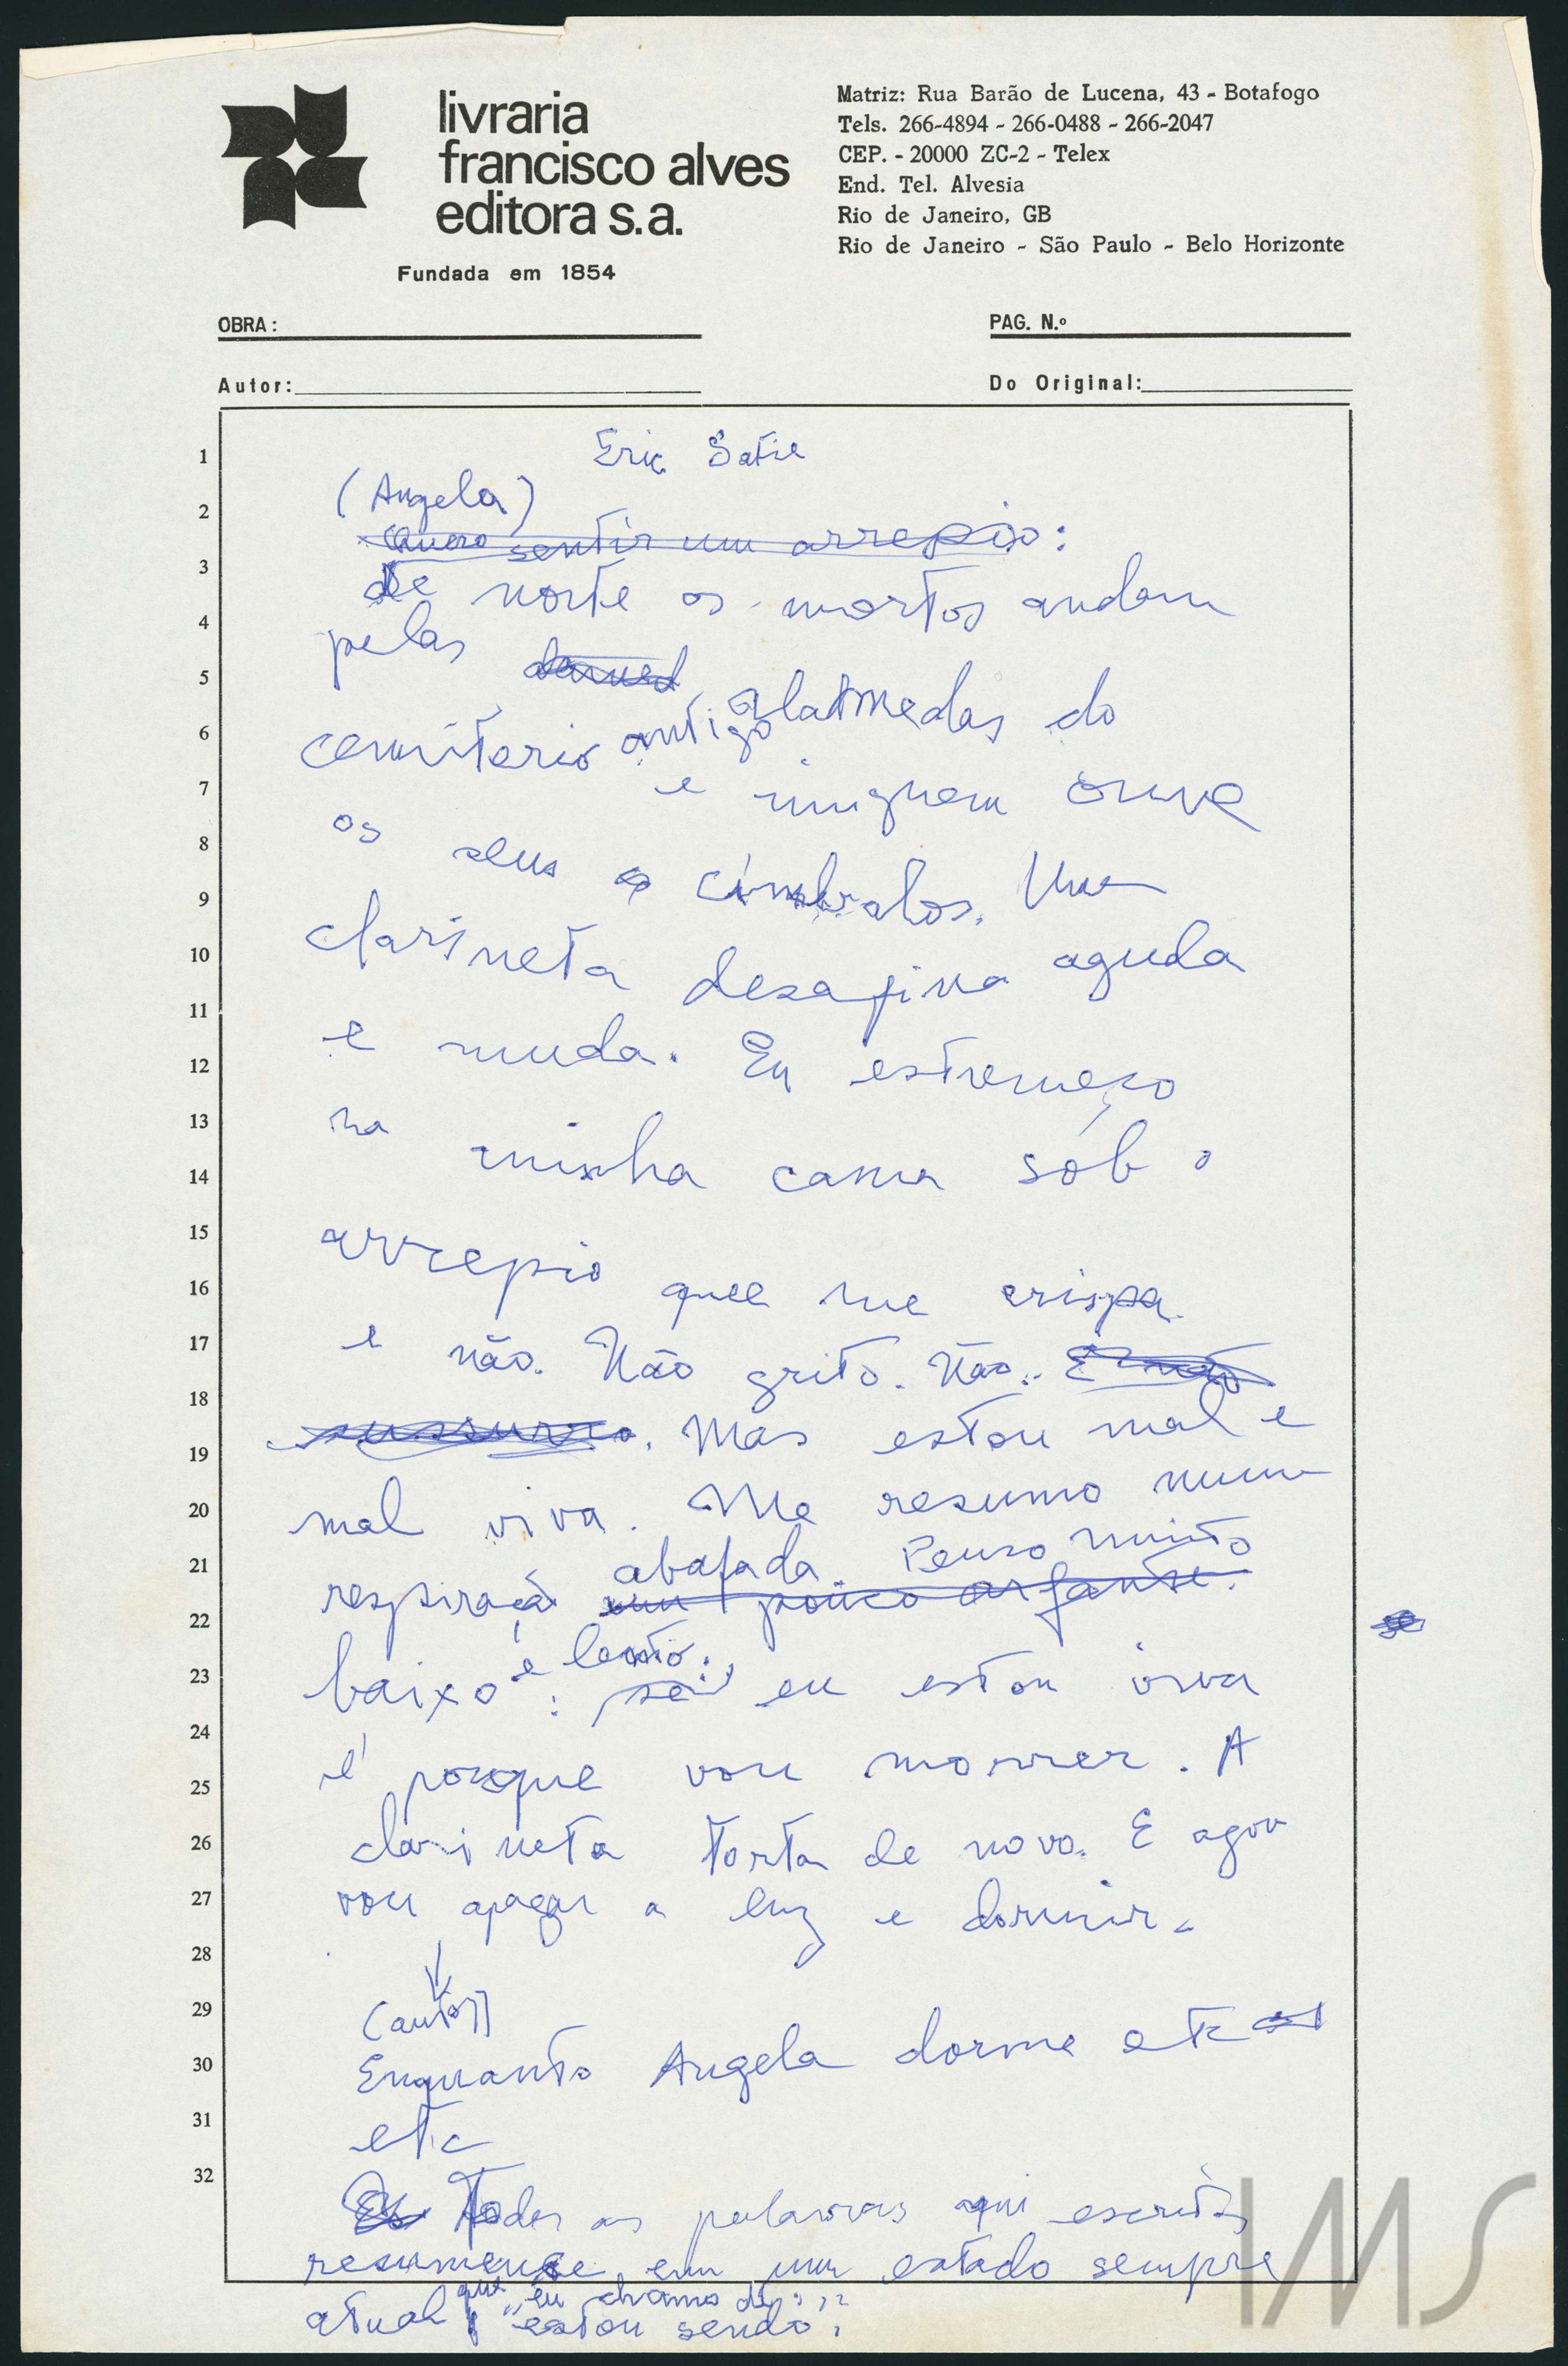 livraria
francisco alves
editora s.a.
Fundada em 1854
Matriz: Rua Barão de Lucena, 43 - Botafogo
Tels. 266-4894 - 266-0488 - 266-2047
CEP. - 20000 ZC-2 - Telex
End. Tel. Alvesia
Rio de Janeiro, GB
Rio de Janeiro - São Paulo - Belo Horizonte
OBRA:
PAG. N.º
Autor:
Do Original:
1
2
3
4
5
6
7
8
9
10
11
12
13
14
15
16
17
18
19
20
21
22
23
24
25
26
27
28
29
30
31
32
Eric Satie
(Angela)
Quero sentir um arrepio:
de noite os mortos andam
pelas
alamedas do
cemiterio antigo
e ninguem ouve
os seus címbalos. Uma
clarineta desafina aguda
e muda. Eu estremeço
na minha cama sób o
arrepio que me crispa
e não. Não grito. Não. E não
sussurro. Mas estou mal e
mal viva. Me resumo numa
abafada. Penso muito
respiração um pouco arfante.
e lento:
baixo: se eu estou viva
é porque vou morrer. A
clarineta torta de novo. E agora
vou apagar a luz e dormir.
(autor)
Enquanto Angela dorme etc
etc
Todas as palavras aqui escritas
resumem-se em um estado sempre
que eu chamo de:
atual "estou sendo".
IMS